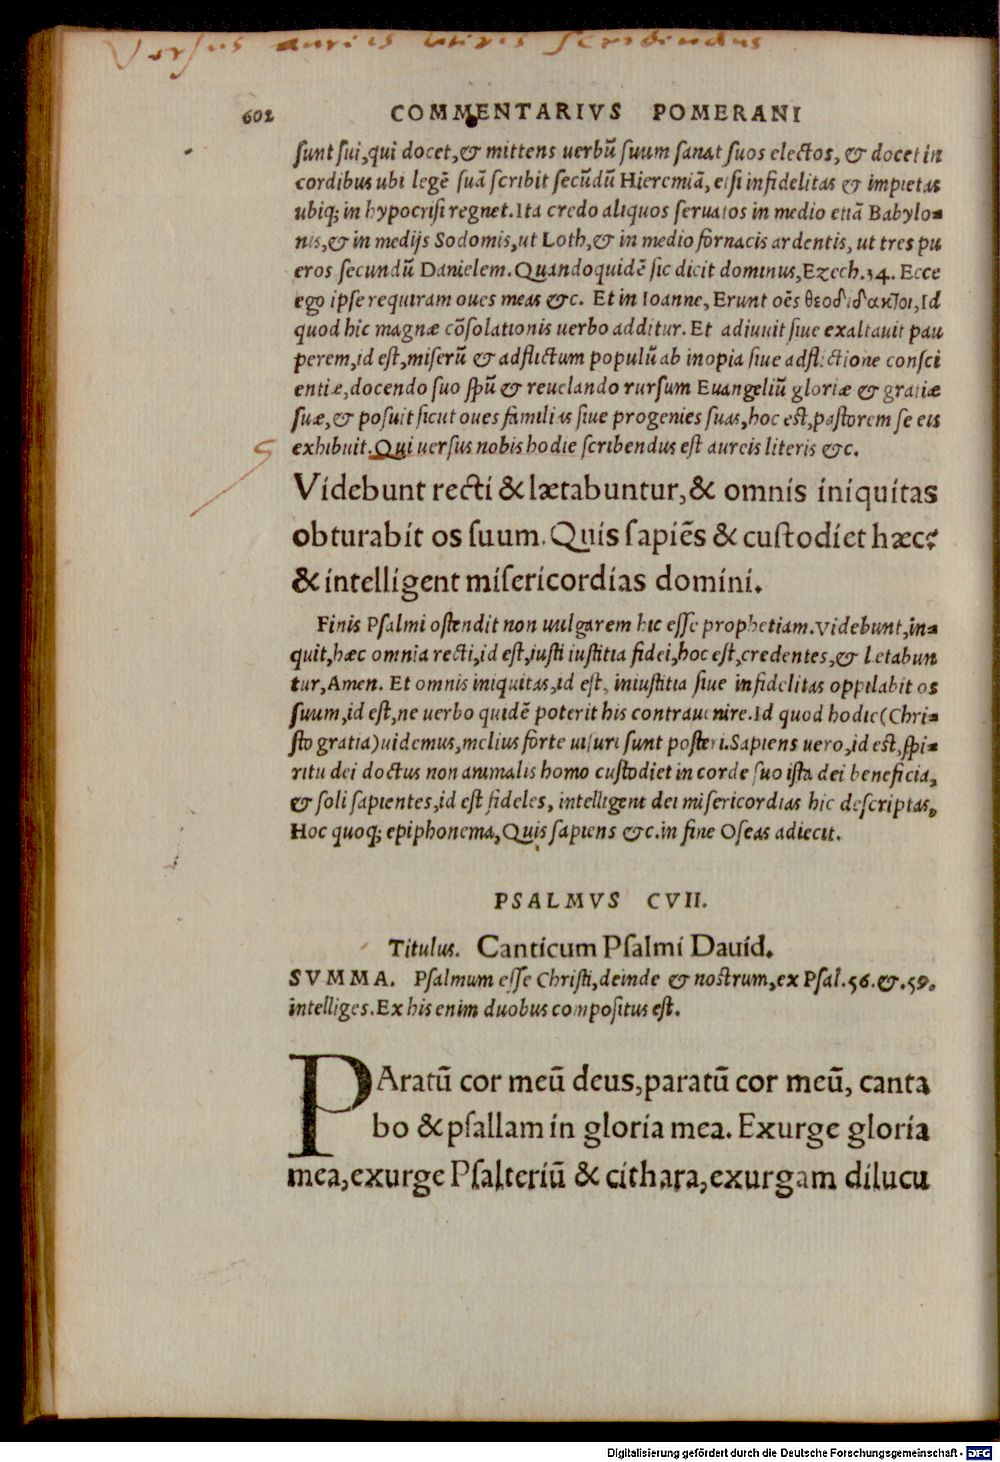 Versus aureis literis scribendus
602 COMMENTARIVS POMERANI
ſunt ſui, qui docet, & mittens uerbũ ſuum ſanat ſuos electos, & docet in
cordibus ubi legẽ ſuã ſcribit ſecũdũ Hieremiã, etſi infidelitas & impietas
ubiq; in hypocriſi regnet. Ita credo aliquos ſeruatos in medio etiã Babylo=
nis, & in medijs Sodomis, ut Loth, & in medio fornacis ardentis, ut tres pu
eros ſecundũ Danielem. Quandoquidẽ ſic dicit dominus, Ezech. 34. Ecce
ego ipſe requiram oues meas &c. Et in Ioanne, Erunt oẽs θεοδίδακτοι, Id
quod hic magnæ cõſolationis uerbo additur. Et adiuuit ſiue exaltauit pau
perem, id eſt, miſerũ & adflictum populũ ab inopia ſiue adflictione conſci
entiæ, docendo ſuo ſpũ & reuelando rurſum Euangeliũ gloriæ & gratiæ
ſuæ, & poſuit ſicut oues familias ſiue progenies ſuas, hoc eſt, paſtorem ſe eis
exhibuit. Qui uerſus nobis hodie ſcribendus eſt aureis literis &c.
Videbunt recti & lætabuntur, & omnis iniquitas
obturabit os ſuum. Quis ſapiẽs & cuſtodiet hæc?
& intelligent miſericordias domini.
Finis Pſalmi oſtendit non uulgarem hic eſſe prophetiam. Videbunt, in=
quit, hæc omnia recti, id eſt, iuſti iuſtitia fidei, hoc eſt, credentes, & letabun
tur, Amen. Et omnis iniquitas, id eſt, iniuſtitia ſiue infidelitas oppilabit os
ſuum, id eſt, ne uerbo quidẽ poterit his contrauenire. Id quod hodie (Chri=
ſto gratia) uidemus, melius forte uiſuri ſunt poſteri. Sapiens uero, id eſt, ſpi=
ritu dei doctus non animalis homo cuſtodiet in corde ſuo iſta dei beneficia,
& ſoli ſapientes, id eſt fideles, intelligent dei miſericordias hic deſcriptas,
Hoc quoq; epiphonema, Quis ſapiens &c. in fine Oſeas adiecit.
PSALMVS CVII.
Titulus. Canticum Pſalmi Dauid.
SVMMA. Pſalmum eſſe Chriſti, deinde & noſtrum, ex Pſal. 56. &. 59.
intelliges. Ex his enim duobus compoſitus eſt.
PAratũ cor meũ deus, paratũ cor meũ, canta
bo & pſallam in gloria mea. Exurge gloria
mea, exurge Pſalteriũ & cithara, exurgam dilucu
Digitalisierung gefördert durch die Deutsche Forschungsgemeinschaft - DFG